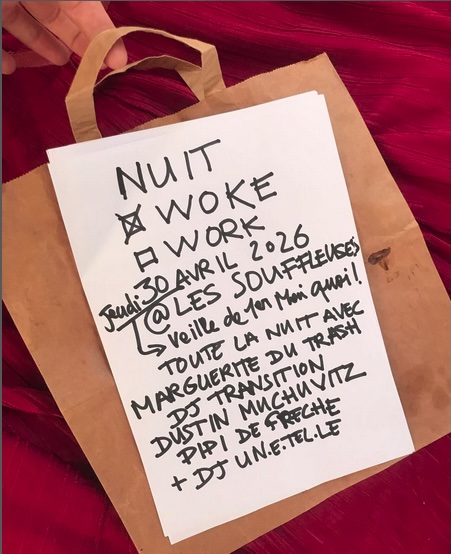 NUIT
☒ WOKE
☐ WORK
Jeudi 30 AVRIL 2026
@ LES SOUFFLEUSES
↳ Veille de 1er Mai quoi !
TOUTE LA NUIT AVEC
MARGUERITE DU TRASH
DJ TRANSITION
DUSTIN MUCHUVITZ
PIPI DE FRECHE
+ DJ U.N.E.TEL.LE